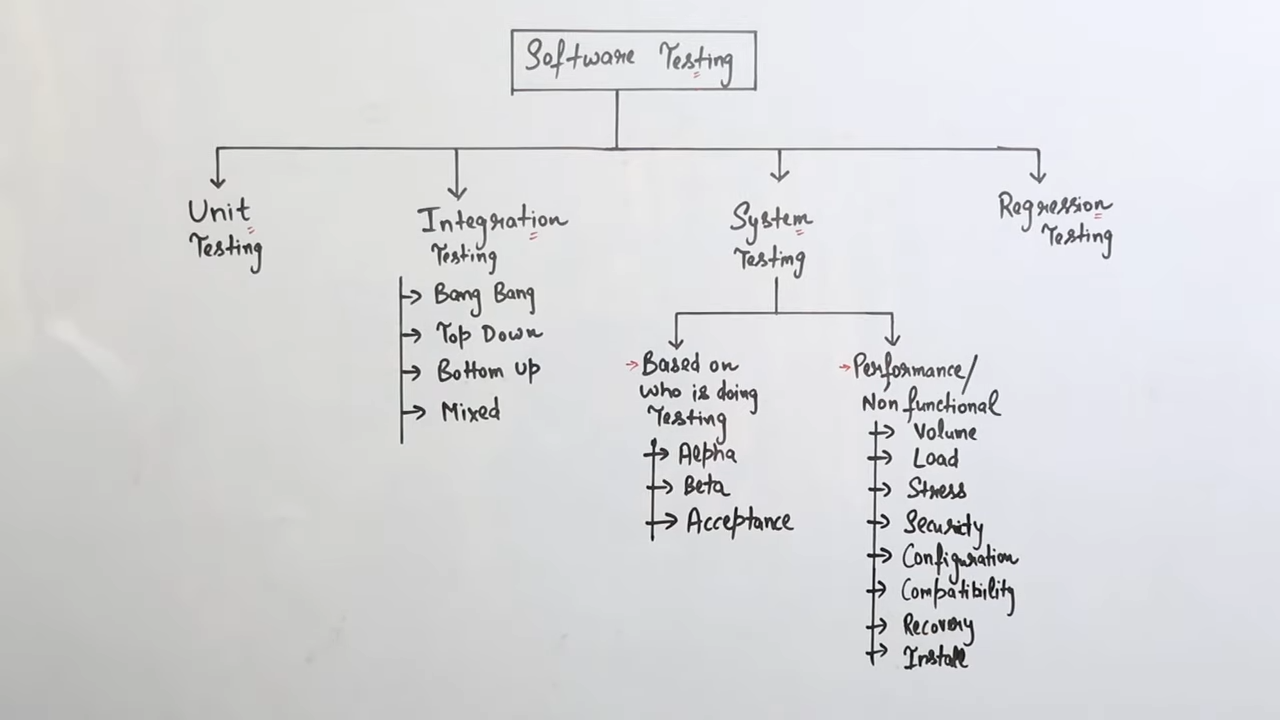 Software Testing
Unit
Testing
Integration
Testing
Bang Bang
Top Down
Bottom Up
Mixed
System
Testing
Based on
Who is doing
Testing
Alpha
Beta
Acceptance
Performance/
Non functional
Volume
Load
Stress
Security
Configuration
Compatibility
Recovery
Install
Regression
Testing